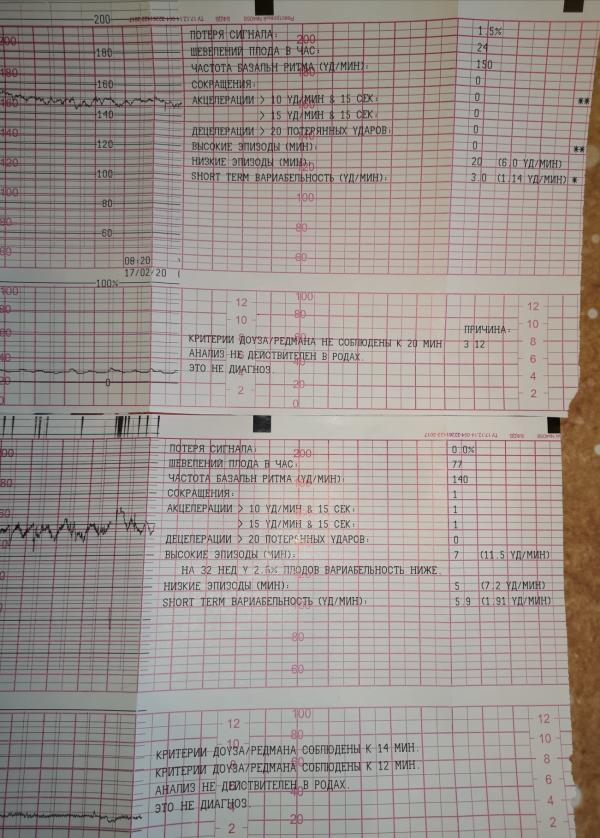 200
180
160
140
120
100
80
60
08:20
17/02/20
100%
0
ПОТЕРЯ СИГНАЛА: 1.5%
ШЕВЕЛЕНИЙ ПЛОДА В ЧАС: 24
ЧАСТОТА БАЗАЛЬН РИТМА (УД/МИН): 150
СОКРАЩЕНИЯ: 0
АКЦЕЛЕРАЦИИ > 10 УД/МИН & 15 СЕК: 0 **
> 15 УД/МИН & 15 СЕК: 0
ДЕЦЕЛЕРАЦИИ > 20 ПОТЕРЯННЫХ УДАРОВ: 0
ВЫСОКИЕ ЭПИЗОДЫ (МИН): 0 **
НИЗКИЕ ЭПИЗОДЫ (МИН): 20 (6.0 УД/МИН)
SHORT TERM ВАРИАБЕЛЬНОСТЬ (УД/МИН): 3.0 (1.14 УД/МИН) *
ПРИЧИНА:
КРИТЕРИИ ДОУЗА/РЕДМАНА НЕ СОБЛЮДЕНЫ К 20 МИН 3 12
АНАЛИЗ НЕ ДЕЙСТВИТЕЛЕН В РОДАХ.
ЭТО НЕ ДИАГНОЗ.
ПОТЕРЯ СИГНАЛА: 0.0%
ШЕВЕЛЕНИЙ ПЛОДА В ЧАС: 77
ЧАСТОТА БАЗАЛЬН РИТМА (УД/МИН): 140
СОКРАЩЕНИЯ: 1
АКЦЕЛЕРАЦИИ > 10 УД/МИН & 15 СЕК: 1
> 15 УД/МИН & 15 СЕК: 1
ДЕЦЕЛЕРАЦИИ > 20 ПОТЕРЯННЫХ УДАРОВ: 0
ВЫСОКИЕ ЭПИЗОДЫ (МИН): 7 (11.5 УД/МИН)
НА 32 НЕД У 2.5% ПЛОДОВ ВАРИАБЕЛЬНОСТЬ НИЖЕ.
НИЗКИЕ ЭПИЗОДЫ (МИН): 5 (7.2 УД/МИН)
SHORT TERM ВАРИАБЕЛЬНОСТЬ (УД/МИН): 5.9 (1.91 УД/МИН)
КРИТЕРИИ ДОУЗА/РЕДМАНА СОБЛЮДЕНЫ К 14 МИН.
КРИТЕРИИ ДОУЗА/РЕДМАНА СОБЛЮДЕНЫ К 12 МИН.
АНАЛИЗ НЕ ДЕЙСТВИТЕЛЕН В РОДАХ.
ЭТО НЕ ДИАГНОЗ.